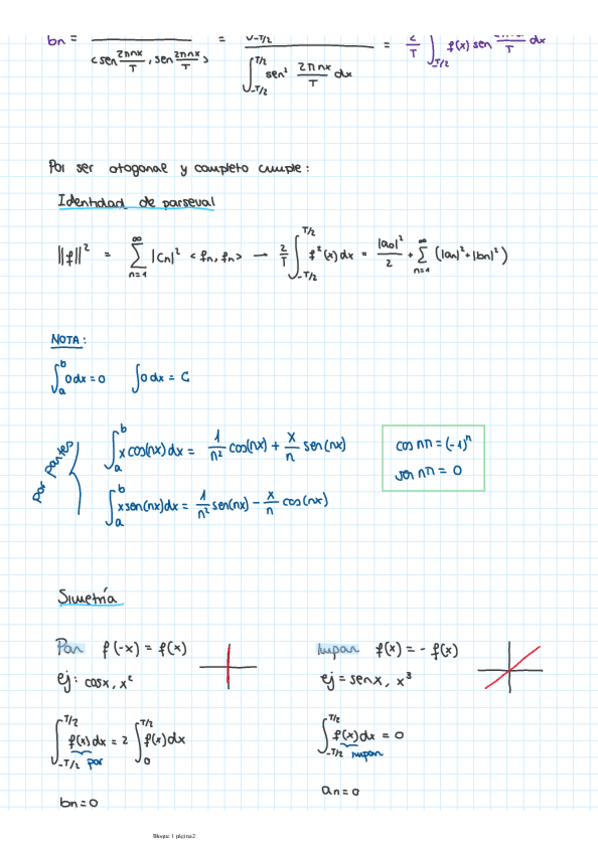 bn = / <sen 2πnx/T, sen 2πnx/T> = / ∫_{-T/2}^{T/2} sen² 2πnx/T dx = 2/T ∫_{-T/2} f(x) sen 2πnx/T dx
Por ser otogonal y completo cumple:
Identidad de parseval
||f||² = Σ_{n=1}^{∞} |Cn|² <fn, fn> → 2/T ∫_{-T/2}^{T/2} f²(x) dx = |a0|²/2 + Σ_{n=1}^{∞} (|an|² + |bn|²)
NOTA:
∫_a^b 0 dx = 0 ∫0 dx = C
por partes
∫_a^b x cos(nx) dx = 1/n² cos(nx) + x/n sen(nx)
∫_a^b x sen(nx) dx = 1/n² sen(nx) - x/n cos(nx)
cos nπ = (-1)^n
sen nπ = 0
Simetría
Par f(-x) = f(x)
ej: cosx, x²
∫_{-T/2}^{T/2} f(x) dx = 2 ∫_0^{T/2} f(x) dx
par
bn = 0
Impar f(x) = - f(x)
ej = senx, x³
∫_{-T/2}^{T/2} f(x) dx = 0
impar
an = 0
Bloque 1 página 2